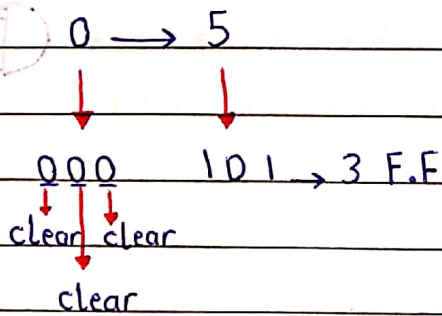 0 → 5
000 101 → 3 F.F
clear clear
clear